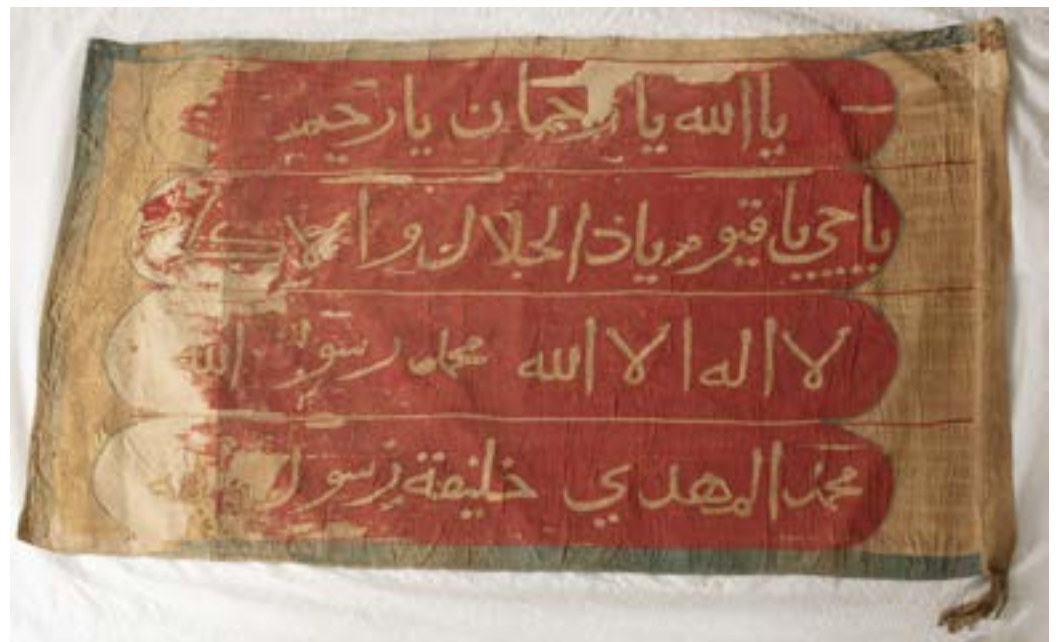 يا الله يا رحمان يا رحيم
يا حي يا قيوم يا ذا الجلال والاكرام
لا اله الا الله محمد رسول الله
محمد المهدي خليفة رسول الله